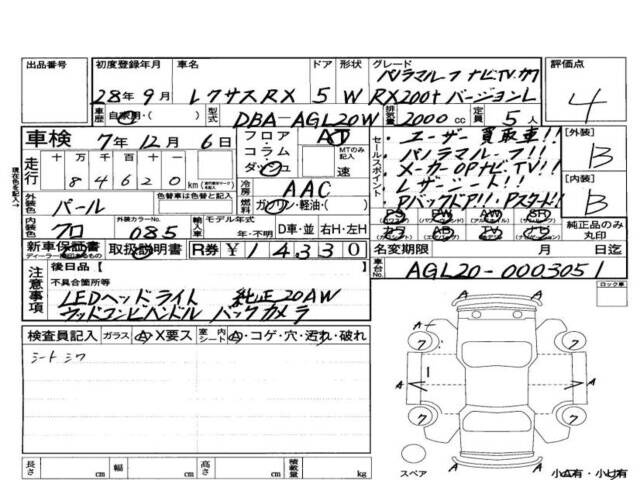 出品番号 初度登録年月 車名 ドア 形状 グレード 評価点
パノラマルーフ ナビTV
28年 9月 レクサスRX 5 W RX200t バージョンL 4
車歴 自家用・( ) 型式 DBA-AGL20W 排気量 2000 cc 定員 5 人
車検 7年 12月 6日 フロア コラム ダッシュ AT MTのみ記入 速
走行 十万 万 千 百 十 km
8 4 6 2 0
冷房 AAC
外装色 パール 色替車は色替と記入 燃料 ガソリン・軽油・( )
内装色 クロ 外装カラーNo. 085 輸入車 モデル年式 年・不明 D車・並 右H・左H
セールスポイント
・ユーザー買取車!!
・パノラマルーフ!!
・メーカーOPナビTV!!
・レザーシート!!
・PバックドアIJ!!
[外装] B
[内装] B
PS PW AW SR
純正品のみ丸印
新車保証書 取扱説明書 R券 ¥14330
ディーラー捺印のあるもの
名変期限 月 日迄
車台No. AGL20-0003051
ロック車
注意事項 後日品【 】
不具合箇所等
LEDヘッドライト 純正20AW
ウッドコンビハンドル バックカメラ
検査員記入 ガラス A・X要ス 室内シート A・コゲ・穴・汚れ・破れ
シートシワ
A A A A A A
7 7 7 7
スペア
長さ cm 幅 cm 高さ cm 積載量 kg
小A有・小U有
現在色を記入→